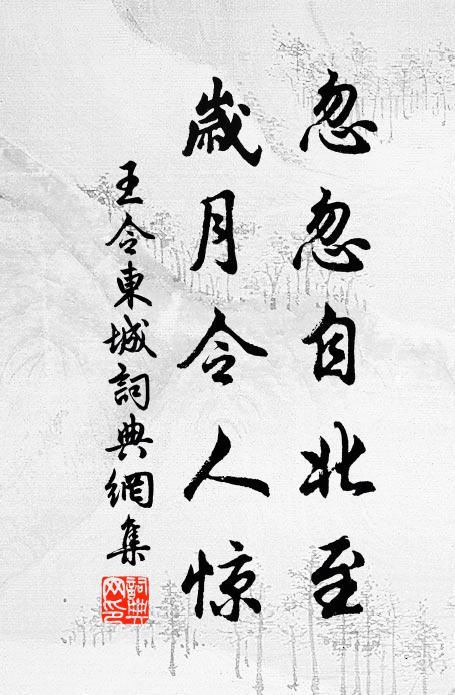 忽忽自北至
歲月令人惊
王令東城詞典網集
詞典网印